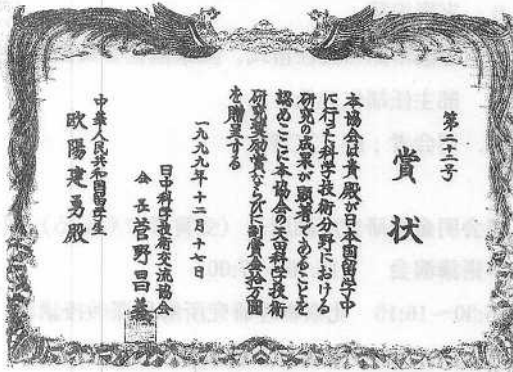 第二十二号
賞状
本協会は貴殿が日本国留学中
に行った科学技術分野における
研究の成果が顕著であることを
認めここに本協会の
研究奨励賞ならびに副賞金拾万圓
を贈呈する
一九九九年十二月十七日
日中科学技術交流協会
会長 菅野昌
中華人民共和国留学生
欧陽建勇殿